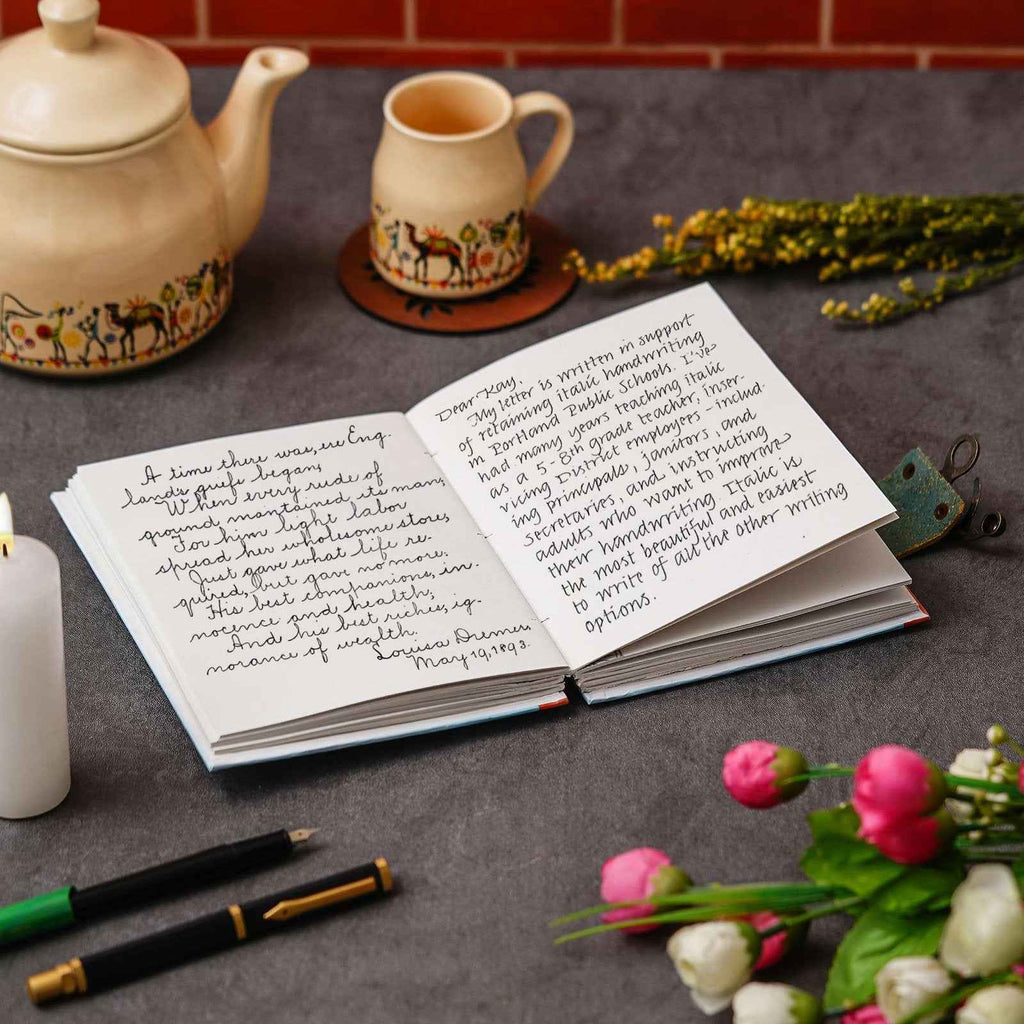 A time there was, ere Eng-
land's griefs began,
When every rude of
ground maintained its man;
For him light labor
spread her wholesome stores,
Just gave what life re-
quired, but gave no more:
His best companions, in-
nocence and health;
And his best riches, ig-
norance of wealth.
Louisa
May 19, 1893.
Dear Kay,
My letter is written in support
of retaining italic handwriting
in Portland Public Schools. I've
had many years teaching italic
as a 5-8th grade teacher, inser-
vicing District employees - includ-
ing principals, janitors, and
secretaries, and instructing
adults who want to improve
their handwriting. Italic is
the most beautiful and easiest
to write of all the other writing
options.